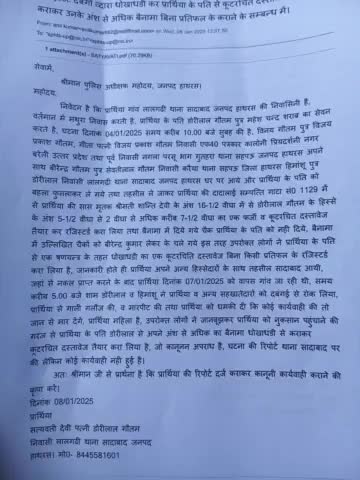 दबंगों द्वारा धोखाधड़ी कर प्रार्थिया के पति से कूटरचित
कराकर उनके अंश से अधिक बैनामा बिना प्रतिफल के कराने के सम्बन्ध में।
सेवामें,
श्रीमान पुलिस अधीक्षक महोदय, जनपद हाथरस।
महोदय,
निवेदन है कि प्रार्थिया गांव लालगढी थाना सादाबाद जनपद हाथरस की निवासिनी है,
वर्तमान में मथुरा निवास करती है, प्रार्थिया के पति डोरीलाल गौतम पुत्र महेश चन्द्र शराब का सेवन
करते है, घटना दिनांक 04/01/2025 समय करीब 10.00 बजे सुबह की है, विनय गौतम पुत्र विजय
प्रकाश गौतम, गीता पत्नी विजय प्रकाश गौतम निवासी एफ40 पत्रकार कालोनी प्रियदर्शनी नगर
बरेली उत्तर प्रदेश तथा पूर्व निवासी नगला परसू माग गुतहरा थाना सहपऊ जनपद हाथरस अपने
साथ बीरेन्द्र गौतम पुत्र सेवतीलाल गौतम निवासी करैया थाना सहपऊ जिला हाथरस हिमांशु पुत्र
डोरीलाल निवासी लालगढी थाना सादाबाद जनपद हाथरस घर पर आये और प्रार्थिया के पति को
बहला फुसलाकर ले गये तथा तहसील ले जाकर प्रार्थिया की ददालाई सम्पत्ति गाटा सं0 1129 में
से प्रार्थिया की सास मृतक श्रीमती शान्ति देवी के अंश 16-1/2 वीघा में से डोरीलाल गौतम के हिस्से
के अंश 5-1/2 वीघा से 2 वीघा से अधिक करीब 7-1/2 वीघा का एक फर्जी व कूटरचित दस्तावेज
तैयार कर रजिस्टर्ड करा लिया तथा बैनामा में दिये गये चैक प्रार्थिया के पति को नही दिये, बैनामा
में उल्लिखित चैकों को बीरेन्द्र कुमार लेकर के चले गये इस तरह उपरोक्त लोगों ने प्रार्थिया के पति
से एक षणयन्त्र के तहत धोखाधडी का एक कूटरचिति दस्तावेज बिना किसी प्रतिफल के रजिस्टर्ड
करा लिया है, जानकारी होते ही प्रार्थिया अपने अन्य हिस्सेदारों के साथ तहसील सादाबाद आयी,
जहां से नकल प्राप्त करने के बाद प्रार्थिया दिनांक 07/01/2025 को वापस गांव जा रही थी, समय
करीब 5.00 बजे शाम डोरीलाल व हिमांशु ने प्रार्थिया व अन्य सहखातेदारों को दबंगई से रोक लिया,
प्रार्थिया से गाली गलौज की, व मारपीट की तथा प्रार्थिया को धमकी दी कि कोई कार्यवाही की तो
जान से मार देगें, प्रार्थिया महिला है, उपरोक्त लोगों ने जानबूझकर प्रार्थिया को नुकसान पहुंचाने की
गरज से प्रार्थिया के पति डोरीलाल से अपने अंश से अधिक का बैनामा धोखाधडी से कराकर
कूटरचित दस्तावेज तैयार करा लिया है, जो कानूनन अपराध है, घटना की रिपोर्ट थाना सादाबाद पर
की लेकिन कोई कार्यवाही नही हुई है।
अतः श्रीमान जी से प्रार्थना है कि प्रार्थिया की रिपोर्ट दर्ज कराकर कानूनी कार्यवाही कराने की
कृपा करें।
दिनांक 08/01/2025
प्रार्थिया
सत्यवती देवी पत्नी डोरीलाल गौतम
निवासी लालगढी थाना सादाबाद जनपद
हाथरस। मो0- 8445581601